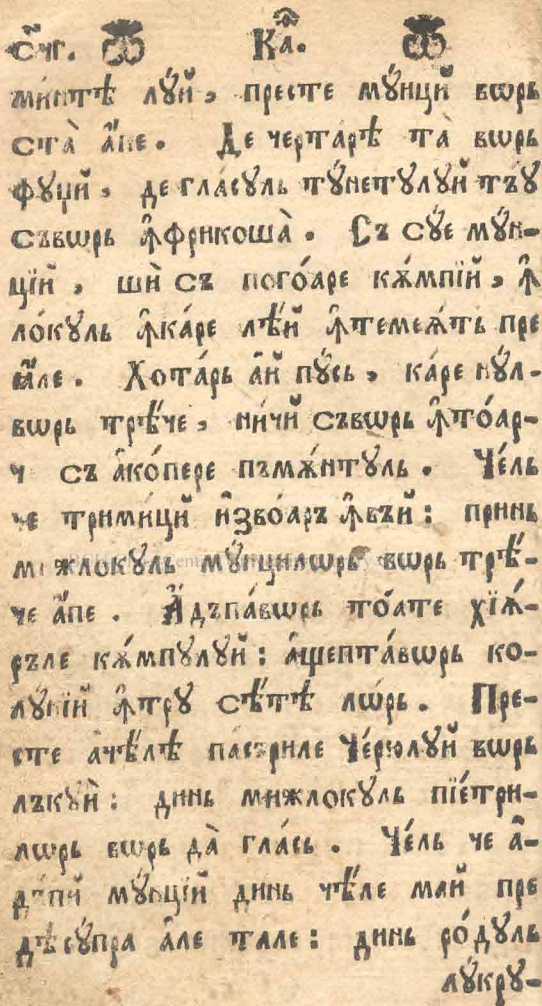 с҃чг. Ка҃.
ми́нтѣ лꙋ́й, престе мꙋ́нцй вѡрь
ста̀ а҆́пе. Де чертарѣ та̀ вѡрь
фꙋцй, де гла́сꙋль тꙋ́нетꙋлꙋй тъ́ꙋ
съвѡрь ꙟ҆фрикоша̀. Съ сꙋ́е мꙋ́н-
цїй, шѝ съ пого́аре кѫ́мпїй, ꙟ҆
ло́кꙋль ꙟ҆ка́ре лѣ́й ꙟ҆темеѧ́ть пре
ꙗ҆́ле. Хота́рь а҆́й пꙋ́сь, ка́ре нꙋ́л-
вѡрь трѣ́че, ни́чй съвѡрь ꙟ҆то́ар-
ч съ а҆ко́пере пъмѫ́нтꙋль. Че́ль
че тримиці́й и҆зво́аръ ꙟ҆въ́й: принь
мижлокꙋль мꙋ́нцилѡрь вѡрь трѣ́-
че а҆́пе. А҆дъпа́вѡрь то́ате хїѧ́-
ръле кѫ́мпꙋлꙋй: а҆щепта́вѡрь ко-
лꙋ́нїй ꙟ҆трꙋ сѣ́тѣ лѡ́рь. Пре-
сте а҆че́лѣ па́съриле Че́рюлꙋй вѡрь
лъкꙋ́й: динь мижлокꙋль пїе́три-
лѡрь вѡрь да̀ гла́сь. Че́ль че а҆-
дъ́пй мꙋ́нцїй динь чѣ́ле май пре
дѣсꙋ́пра а҆́ле тале: динь ро́дꙋль
лꙋ́крꙋ-